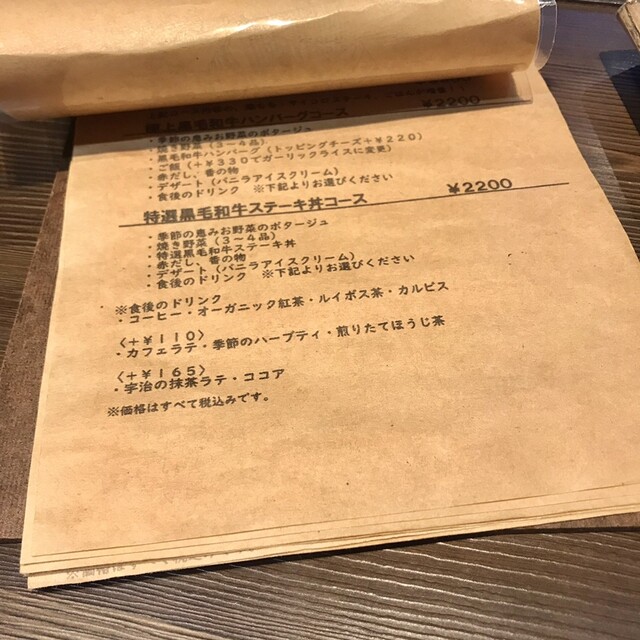 上黒毛和牛ハンバーグコース ¥2200
・季節の恵みお野菜のポタージュ
・焼き野菜(3～4品)
・黒毛和牛ハンバーグ(トッピングチーズ+¥220)
・ご飯(+¥330でガーリックライスに変更)
・赤だし、香の物
・デザート(バニラアイスクリーム)
・食後のドリンク ※下記よりお選びください
特選黒毛和牛ステーキ丼コース ¥2200
・季節の恵みお野菜のポタージュ
・焼き野菜(3～4品)
・特選黒毛和牛ステーキ丼
・赤だし、香の物
・デザート(バニラアイスクリーム)
・食後のドリンク ※下記よりお選びください
※食後のドリンク
・コーヒー・オーガニック紅茶・ルイボス茶・カルピス
〈+¥110〉
・カフェラテ・季節のハーブティ・煎りたてほうじ茶
〈+¥165〉
・宇治の抹茶ラテ・ココア
※価格はすべて税込みです。